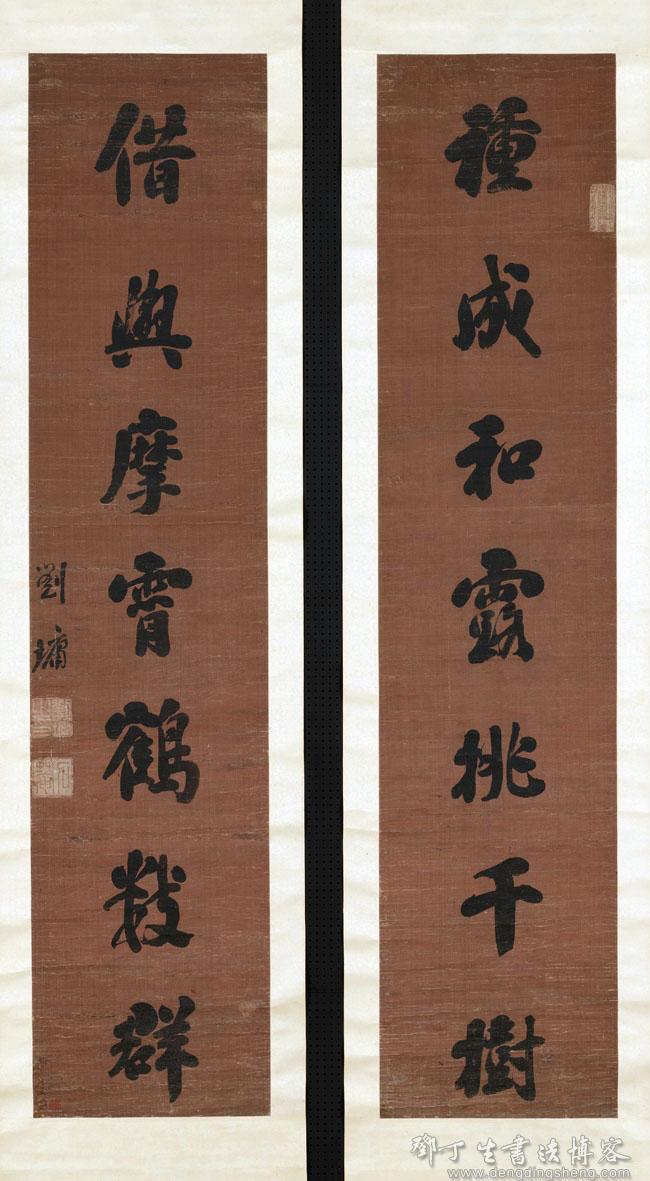 種成和露桃千樹
借與摩霄鶴數群
劉墉
鄧丁生書法博客
www.dengdingsheng.com